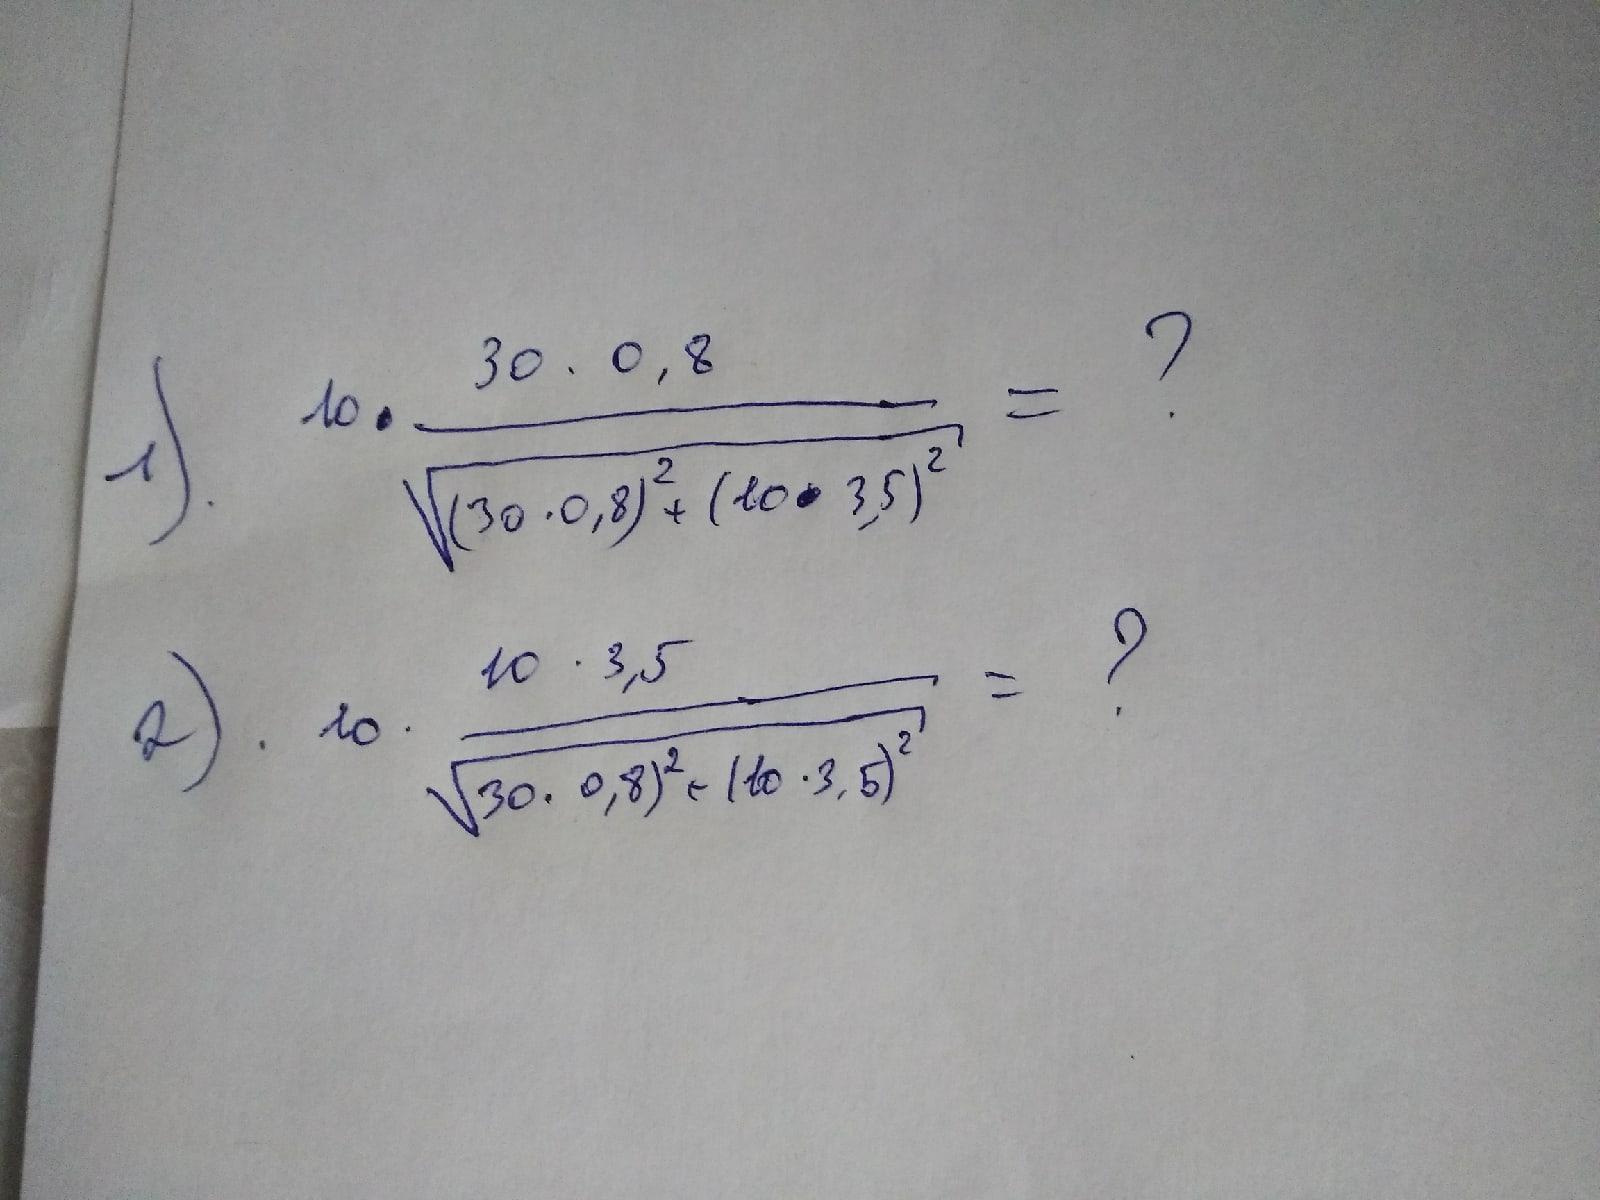 1). 10 · 30 · 0,8 / √(30 · 0,8)² + (10 · 3,5)² = ?
2). 10 · 10 · 3,5 / √30 · 0,8)² + (10 · 3,5)² = ?